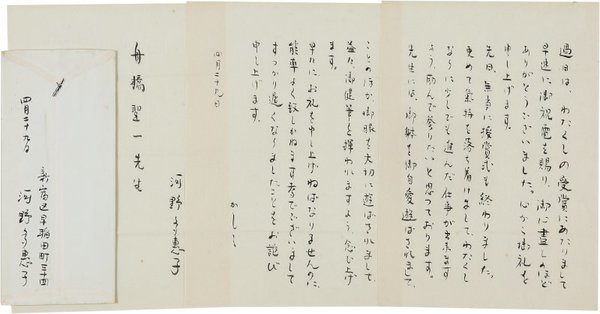 過日は、わたくしの受賞にあたりまして
早速に御祝電を賜り、御心盡しのほど
ありがとうございました。心から御礼を
申し上げます。
先日、無事に授賞式も終わりました。
更めて気持を落ち着けまして、わたくし
なりに少しでも進んだ仕事が出来ます
よう、励んで参りたいと思っております。
先生には、御躰を御自愛遊ばされまして、
ことのほか御眼を大切に遊ばされまして
益々御健筆を揮われますよう、念じ上げ
ます。
早々にお礼を申し上げねばなりませんのに、
能率よく致しかねます者でございまして
すっかり遅くなりましたことをお詫び
申し上げます。
かしこ
四月二十九日
河野多惠子
舟橋聖一先生
四月二十九日
新宿区早稲田町三十四
河野多惠子